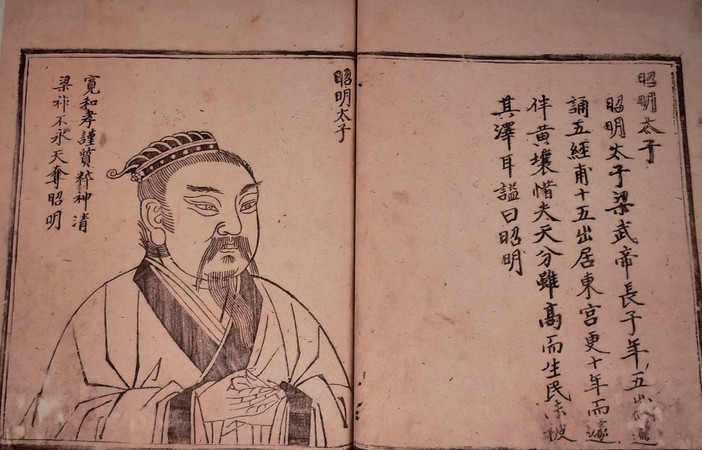 昭明太子
昭明太子梁武帝長子年五
誦五經甫十五出居東宮更十年而遽
伴黃壤惜夫天分雖高而生民未被
其澤耳謚曰昭明
昭明太子
寬和孝謹質粹神清
梁祚不永天奪昭明